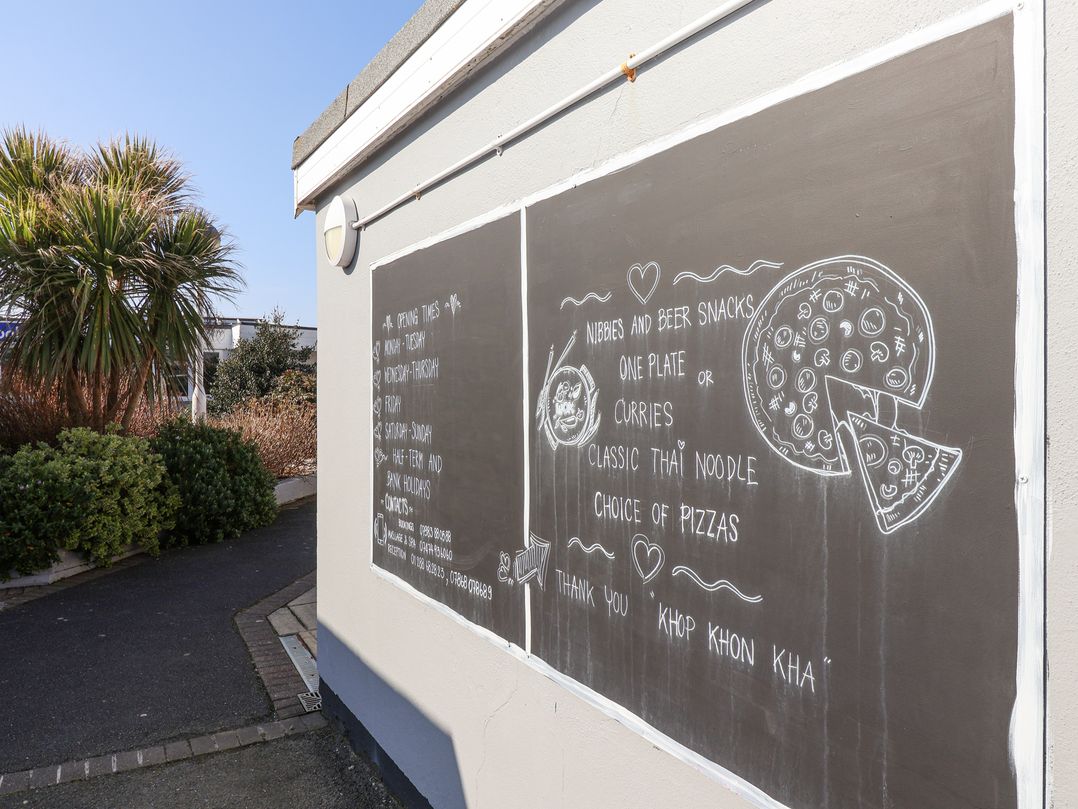 OPENING TIMES
MONDAY - TUESDAY
WEDNESDAY - THURSDAY
FRIDAY
SATURDAY - SUNDAY
HALF-TERM AND
BANK HOLIDAYS
~ CONTACTS ~
BOOKINGS
MASSAGE & SPA
RECEPTION
NIBBIES AND BEER SNACKS
ONE PLATE OR
CURRIES
CLASSIC THAI NOODLE
CHOICE OF PIZZAS
THANK YOU "KHOP KHON KHA"